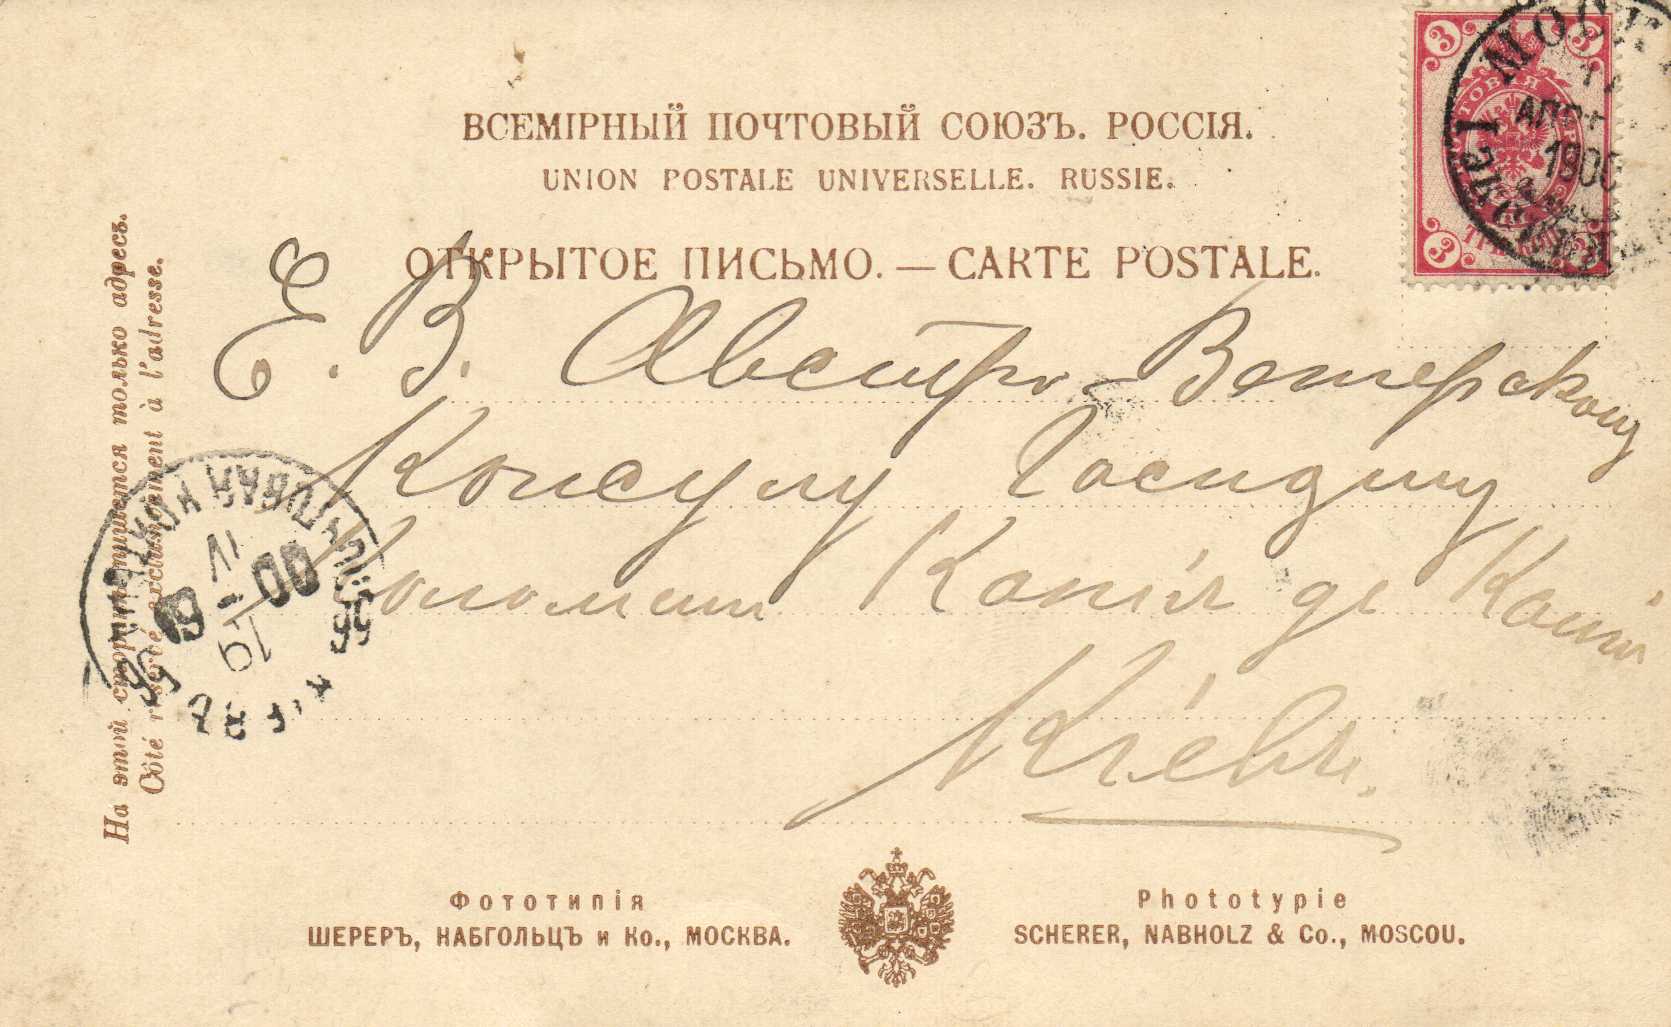 ВСЕМІРНЫЙ ПОЧТОВЫЙ СОЮЗЪ. РОССІЯ.
UNION POSTALE UNIVERSELLE. RUSSIE.
ОТКРЫТОЕ ПИСЬМО. — CARTE POSTALE.
На этой сторонѣ пишется только адресъ.
Côté réservé exclusivement à l'adresse.
Е. В. Австро-Венгерскому
Консулу Господину
de
Кіевъ.
3 3
1900
3 3
19 IV 00
КІЕВЪ
Фототипія
ШЕРЕРЪ, НАБГОЛЬЦЪ и Ко., МОСКВА.
Phototypie
SCHERER, NABHOLZ & Co., MOSCOU.